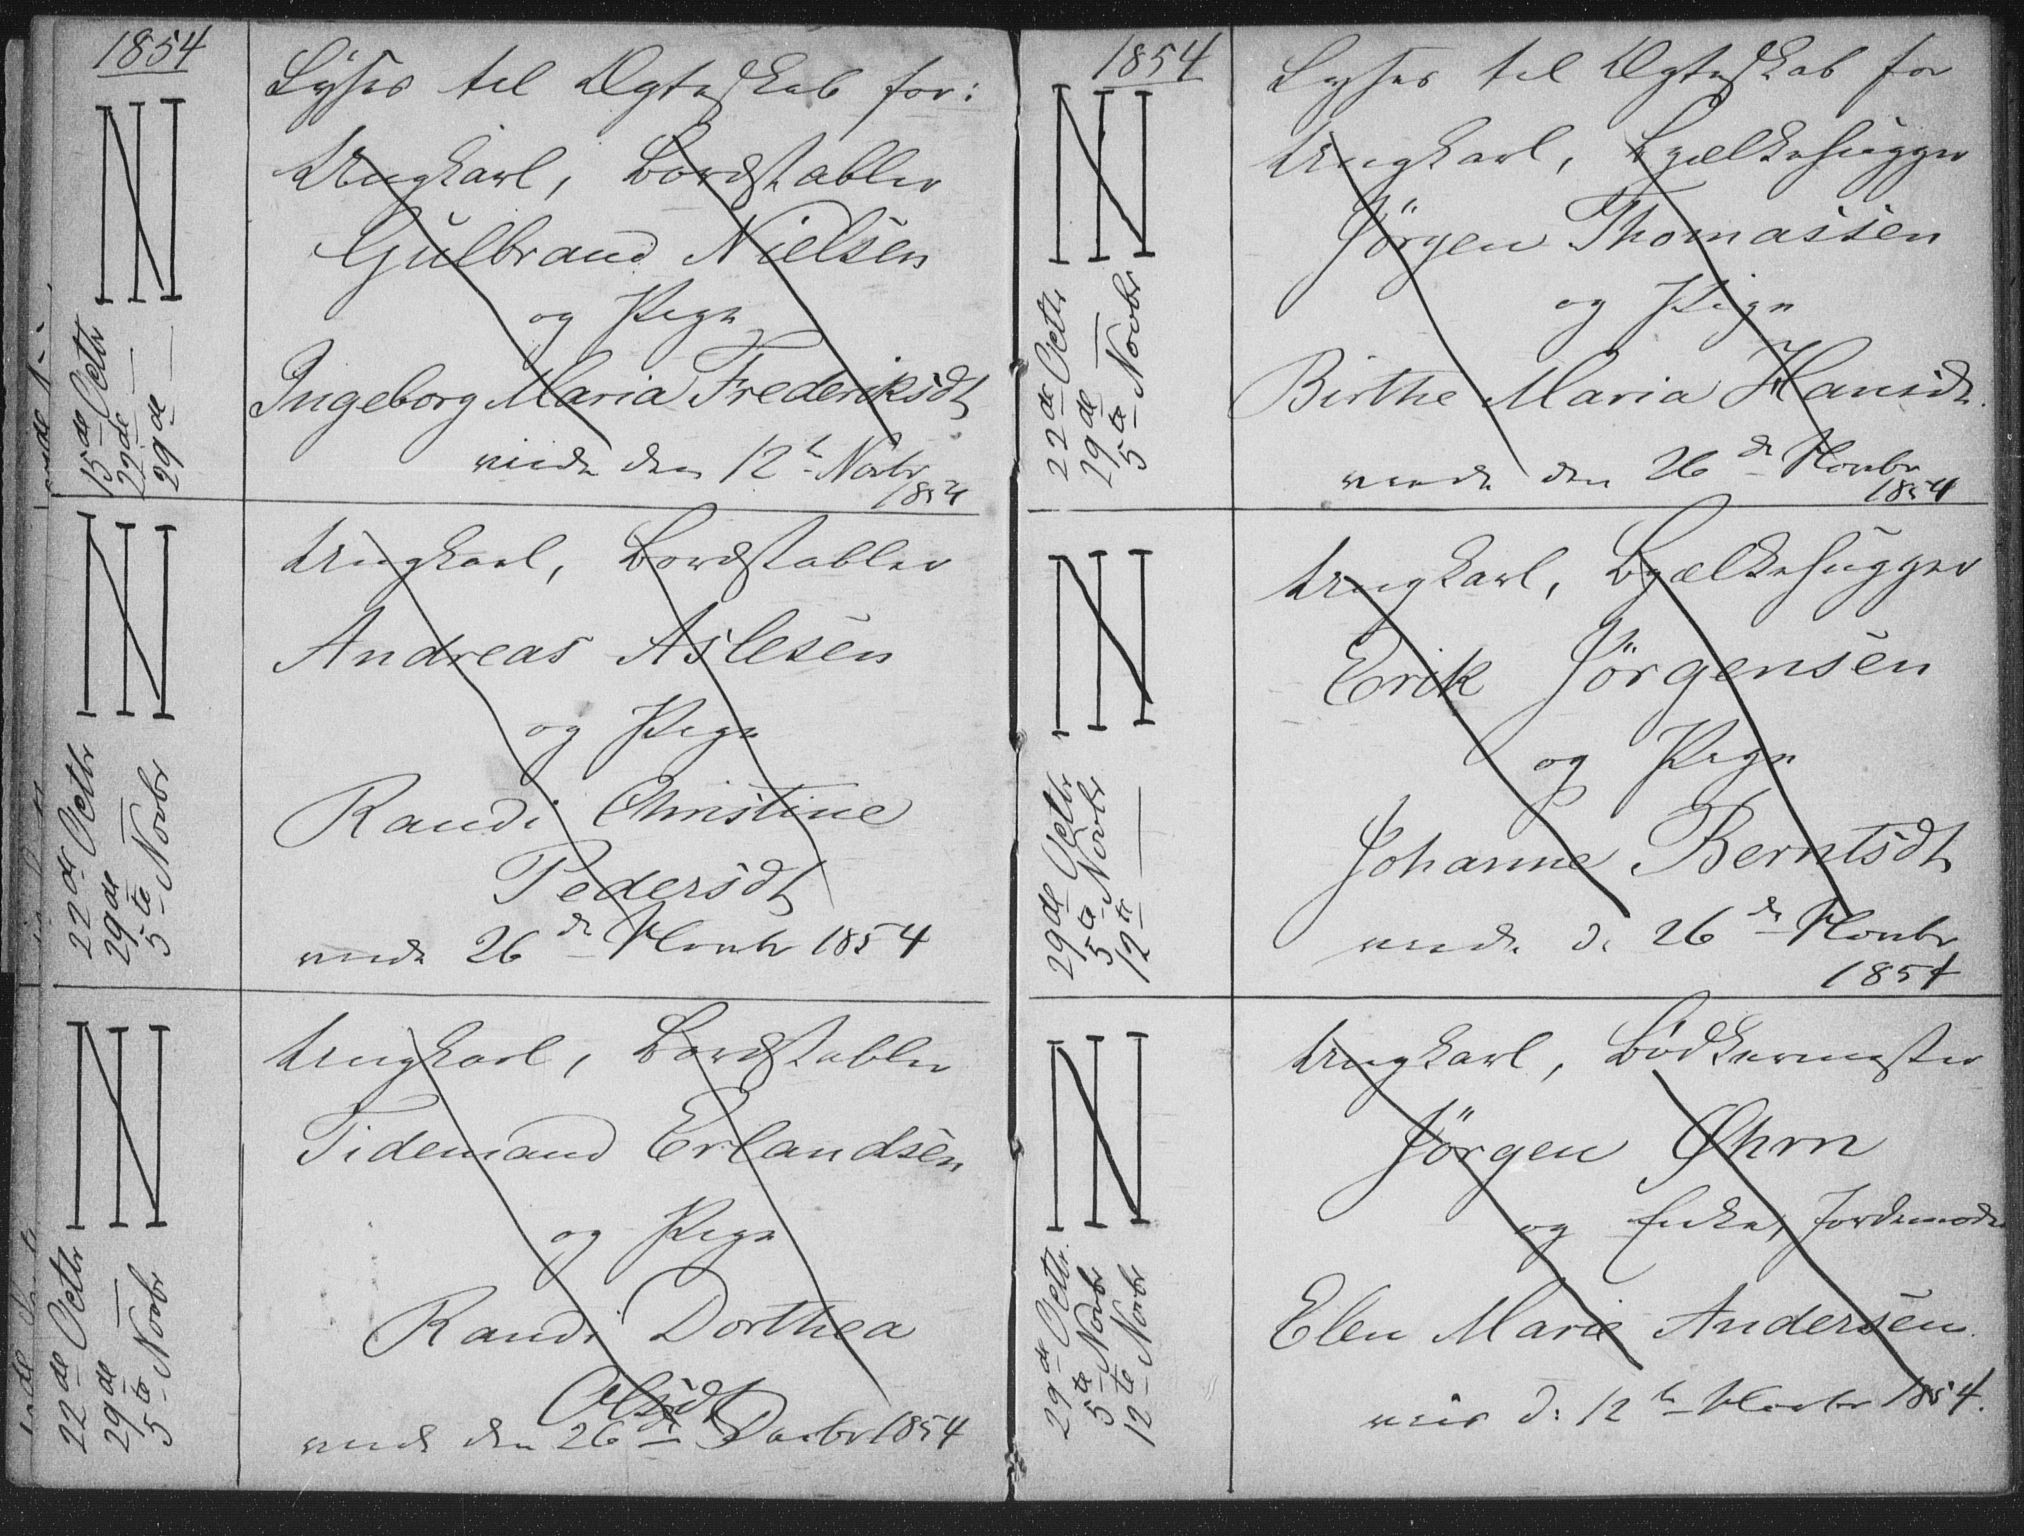 1854
Lyses til Ægteskab for:
Ungkarl, Bordstabler
Gulbrand Nielsen
og Pige
Ingeborg Maria Frederiksdt
viede den 12te Novbr
1854
15de Octbr
22de —
29de —
Ungkarl, Bordstabler
Andreas Aslesen
og Pige
Randi Christine
Pedersdt
viede 26de Novbr 1854
22de Octbr
29de —
5te Novbr
Ungkarl, Bordstabler
Tidemand Erlandsen
og Pige
Randi Dorthea
Olsdt
viede den 26de Decbr 1854
22de Octbr
29de —
5te Novbr
1854
Lyses til Ægteskab for
Ungkarl, Bjælkehugger
Jörgen Thomassen
og Pige
Birthe Maria Hansdt.
viede den 26de Novbr
1854
22de Octbr
29de —
5te Novbr
Ungkarl, Bjælkehugger
Erik Jörgensen
og Pige
Johanne Berntsdt
viede d. 26de Novbr
1854
29de Octbr
5te Novbr
12te —
Ungkarl, Bödkermester
Jörgen Öhrn
og Enke, Jordemoder
Elen Marie Andersen.
viet d: 12te Novbr 1854.
29de Octbr.
5te Novbr
12te Novbr